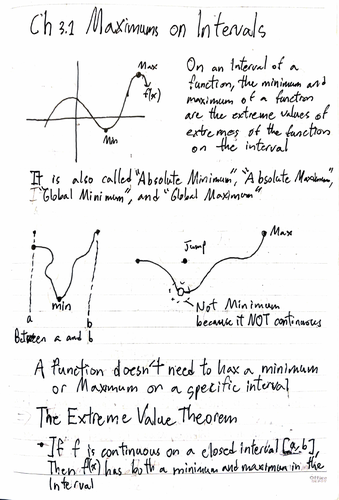 Ch 3.1 Maximums on Intervals
Max
f(x)
Min
On an Interval of a
function, the minimum and
maximum of a function
are the extreme values of
extremes of the function
on the interval
It is also called "Absolute Minimum", "Absolute Maximum",
"Global Minimum", and "Global Maximum"
Max
Jump
min
a
b
Between a and b
Not Minimum
because it NOT continuous
A function doesn't need to hax a minimum
or Maximum on a specific interval
The Extreme Value Theorem
• If f is continuous on a closed interval [a,b],
Then f(x) has both a minimum and maximum in the
Interval